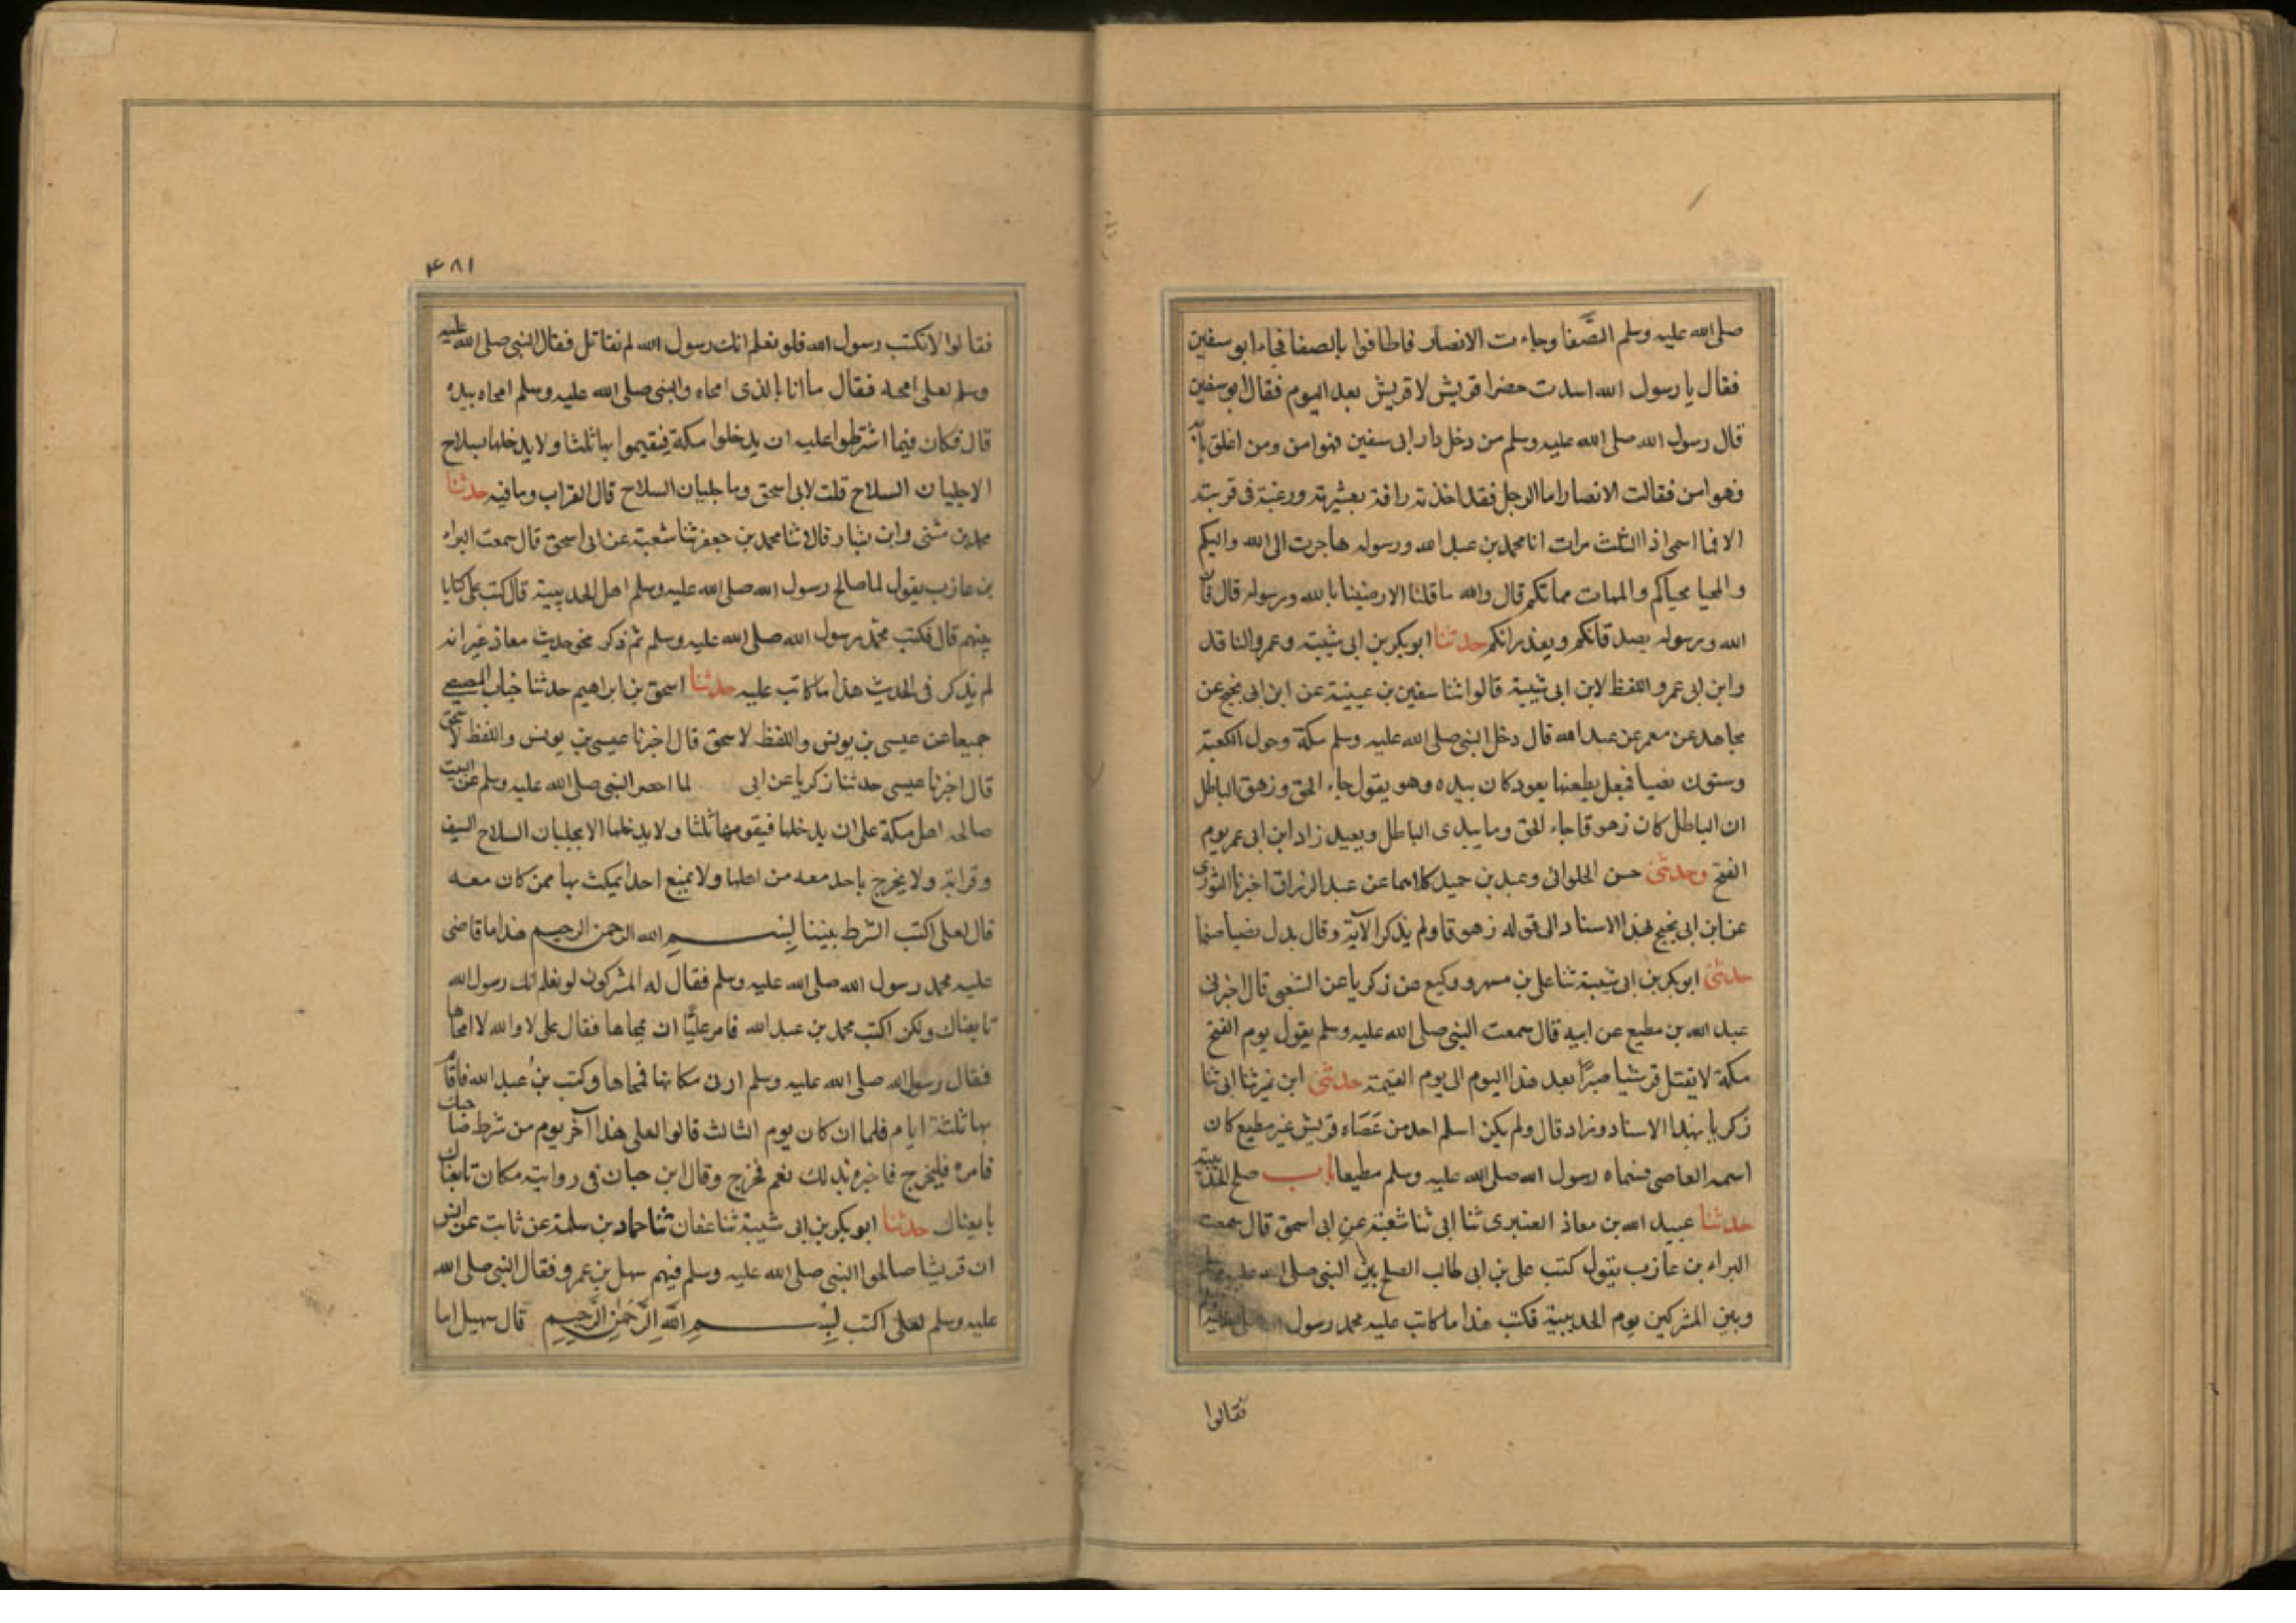 صلى الله عليه وسلم الصَّفا وجاءت الانصار فاطافوا بالصفا فجاء ابو سفين
فقال يا رسول الله اسدت حضرا قريش لا قريش بعد اليوم فقال ابو سفين
قال رسول الله صلى الله عليه وسلم من دخل دار ابى سفين فهو امن ومن اغلق بابه
فهو امن فقالت الانصار اما الرجل فقد اخذته رافة بعشيرته ورغبة فى قريته
الا فما اسمى اذا الثلث مرات انا محمد بن عبد الله ورسوله هاجرت الى الله واليكم
والمحيا محياكم والممات مماتكم قال والله ما قلنا الا ضنينا بالله ورسوله قال فان
الله ورسوله يصدقانكم ويعذرانكم حدثنا ابو بكر بن ابى شيبة وعمرو الناقد
وابن ابى عمر واللفظ لابن ابى شيبة قالوا ثنا سفين بن عيينة عن ابن ابى نجيح عن
مجاهد عن معمر عن عبد الله قال دخل النبى صلى الله عليه وسلم مكة وحول الكعبة
وستون نصبا فجعل يطعنها بعود كان بيده وهو يقول جاء الحق وزهق الباطل
ان الباطل كان زهوقا جاء الحق وما يبدى الباطل ويعيد زاد ابن ابى عمر يوم
الفتح وحدثنى حسن الحلوانى وعبد بن حميد كلاهما عن عبد الرزاق اخبرنا الثورى
عن ابن ابى نجيح بهذا الاسناد الى قوله زهوقا ولم يذكر الآية وقال بدل نصبا صنما
حدثنى ابو بكر بن ابى شيبة ثنا على بن مسهر ووكيع عن زكريا عن الشعبى قال اخبرنى
عبد الله بن مطيع عن ابيه قال سمعت النبى صلى الله عليه وسلم يقول يوم الفتح
مكة لا يقتل قرشيا صبرًا بعد هذا اليوم الى يوم القيمة حدثنى ابن نمير ثنا ابى ثنا
زكريا بهذا الاسناد وزاد قال ولم يكن اسلم احد من عصاه قريش غير مطيع كان
اسمه العاصى فسماه رسول الله صلى الله عليه وسلم مطيعا باب صلح الحديبية
حدثنا عبيد الله بن معاذ العنبرى ثنا ابى ثنا شعبة عن ابى اسحق قال سمعت
البراء بن عازب يقول كتب على بن ابى طالب الصلح بين النبى صلى الله عليه وسلم
وبين المشركين يوم الحديبية فكتب هذا ما كاتب عليه محمد رسول
فقالوا
۴۸۱
فقالوا لا تكتب رسول الله فلو نعلم انك رسول الله لم نقاتل فقال النبى صلى الله عليه
وسلم لعلى امحه فقال ما انا بالذى امحاه والنبى صلى الله عليه وسلم امحاه بيده
قال فكان فيما اشترطوا عليه ان يدخلوا مكة فيقيموا بها ثلثا ولا يدخلها بسلاح
الا جلبان السلاح قلت لابى اسحق وما جلبان السلاح قال القراب وما فيه حدثنا
محمد بن مثنى وابن بشار قالا ثنا محمد بن جعفر ثنا شعبة عن ابى اسحق قال سمعت البراء
بن عازب يقول لما صالح رسول الله صلى الله عليه وسلم اهل الحديبية قال كتب على كتابا
بينهم قال فكتب محمّد رسول الله صلى الله عليه وسلم ثم ذكر نحو حديث معاذ غير انه
لم يذكر فى الحديث هذا ما كاتب عليه حدثنا اسحق بن ابراهيم حدثنا خباب المصيصى
جميعا عن عيسى بن يونس واللفظ لاسحق قال اخبرنا عيسى بن يونس واللفظ لاسحق
قال اخبرنا عيسى حدثنا زكريا عن ابى لما احصر النبى صلى الله عليه وسلم عن البيت
صالحه اهل مكة على ان يدخلها فيقوم بها ثلثا ولا يدخلها الا بجلبان السلاح السيف
وقرابة ولا يخرج باحد معه من اهلها ولا يمنع احدا يمكث بها ممن كان معه
قال لعلى اكتب الشرط بيننا بسم الله الرحمن الرحيم هذا ما قاضى
عليه محمد رسول الله صلى الله عليه وسلم فقال له المشركون لو نعلم انك رسول الله
تابعناك ولكن اكتب محمد بن عبد الله فامر عليًّا ان يمحاها فقال على لا والله لا امحاها
فقال رسول الله صلى الله عليه وسلم ارنى مكانها فمحاها وكتب بنُ عبد الله فاقام
بها ثلثة ايام فلما ان كان يوم الثالث قالوا لعلى هذا آخر يوم من شرط صاحبك
فامره فليخرج فاخبره بذلك نعم فخرج وقال ابن حبان فى روايته مكان تابعناك
بايعناك حدثنا ابو بكر بن ابى شيبة ثنا عفان ثنا حماد بن سلمة عن ثابت عن انس
ان قريشا صالحوا النبى صلى الله عليه وسلم فيهم سهل بن عمرو فقال النبى صلى الله
عليه وسلم لعلى اكتب بِسمِ اللهِ الرَّحمٰنِ الرَّحِيمِ قال سهيل اما